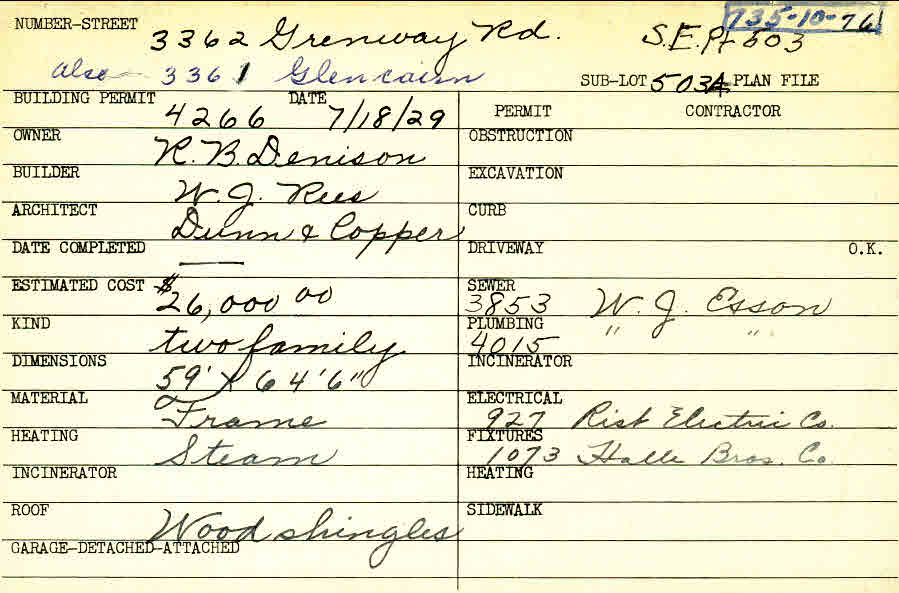 NUMBER-STREET 3362 Grenway Rd. S.E. Pt 503 735-10-76
also - 3361 Glencairn SUB-LOT 503A PLAN FILE
BUILDING PERMIT 4266 DATE 7/18/29 PERMIT CONTRACTOR
OWNER R. B. Denison OBSTRUCTION
BUILDER W. J. Rees EXCAVATION
ARCHITECT Dunn & Copper CURB
DATE COMPLETED — DRIVEWAY O.K.
ESTIMATED COST $ 26,000 00 SEWER 3853 W. J. Esson
KIND two family PLUMBING 4015 " "
DIMENSIONS 59' X 64'6" INCINERATOR
MATERIAL Frame ELECTRICAL 927 Rist Electric Co.
HEATING Steam FIXTURES 1073 Halle Bros. Co.
INCINERATOR HEATING
ROOF Wood shingles SIDEWALK
GARAGE-DETACHED-ATTACHED